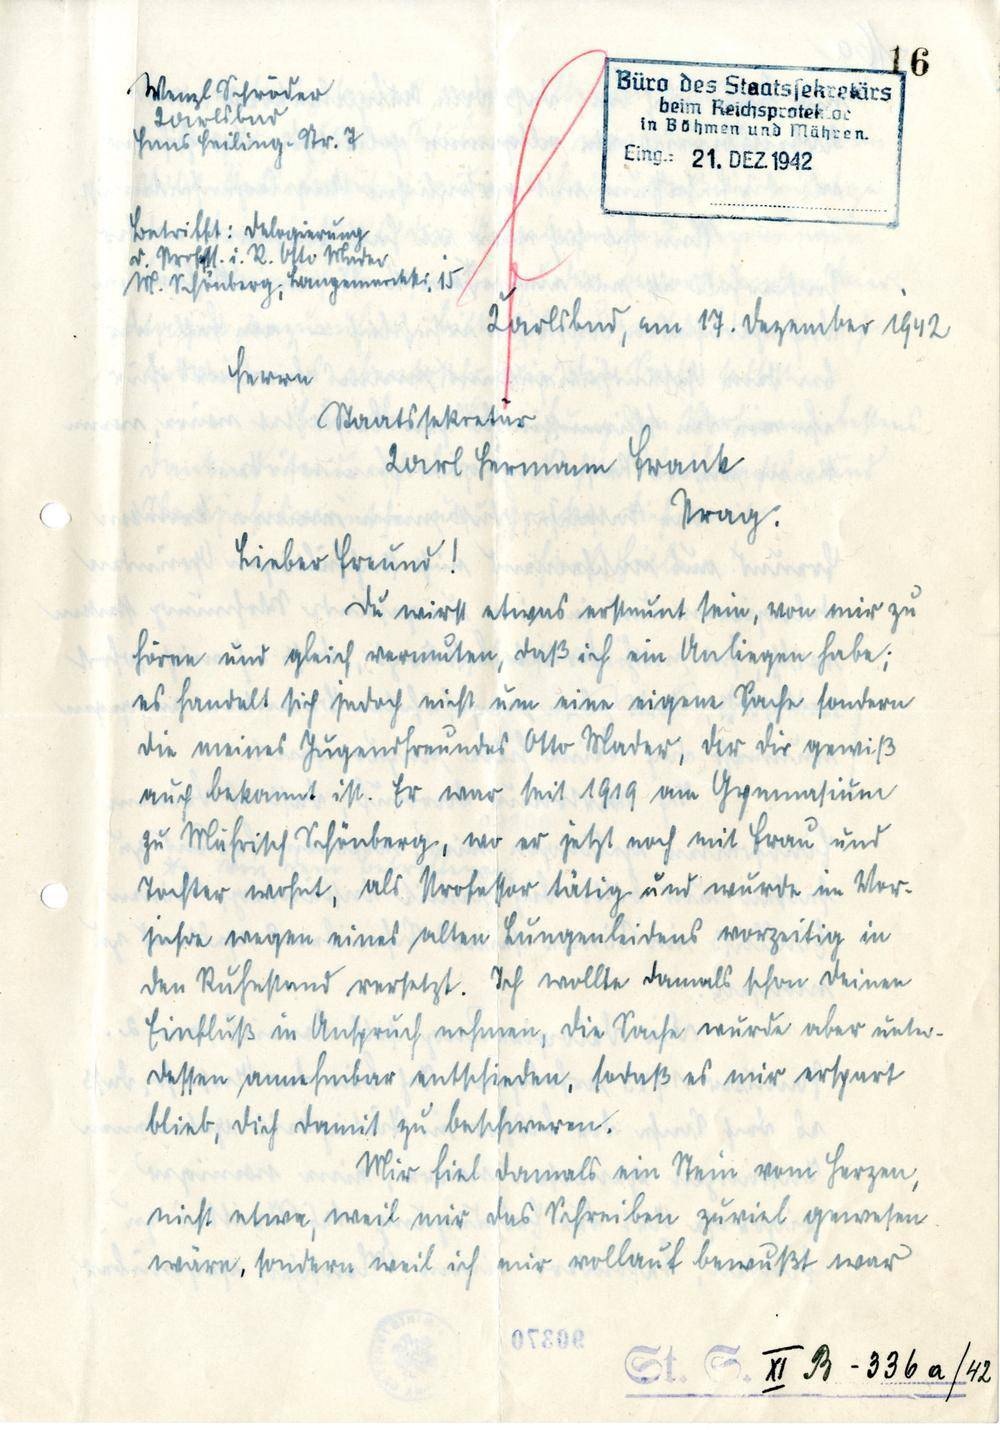 16
Wenzl Schröder
Karlsbad
Hans Heiling-Str. 7
Büro des Staatssekretärs
beim Reichsprotektor
in Böhmen und Mähren.
Eing.: 21. DEZ. 1942
Betrifft: Delogierung
d. Profess. i. R. Otto Mader
M. Schönberg, Langemarckstr. 15
Karlsbad, am 17. Dezember 1942
Herrn
Staatssekretär
Karl Hermann Frank
Prag.
Lieber Freund!
Du wirst etwas erstaunt sein, von mir zu
hören und gleich vermuten, daß ich ein Anliegen habe;
es handelt sich jedoch nicht um eine eigene Sache sondern
die meines Jugendfreundes Otto Mader, der dir gewiß
auch bekannt ist. Er war seit 1919 am Gymnasium
zu Mährisch Schönberg, wo er jetzt noch mit Frau und
Tochter wohnt, als Professor tätig und wurde im Vor-
jahre wegen eines alten Lungenleidens vorzeitig in
den Ruhestand versetzt. Ich wollte damals schon Deinen
Einfluß in Anspruch nehmen, die Sache wurde aber unter-
dessen annehmbar entschieden, sodaß es mir erspart
blieb, Dich damit zu beschweren.
Mir fiel damals ein Stein vom Herzen,
nicht etwa, weil mir das Schreiben zuviel gewesen
wäre, sondern weil ich mir vollauf bewußt war
90370
St. S. XI B - 336 a/42